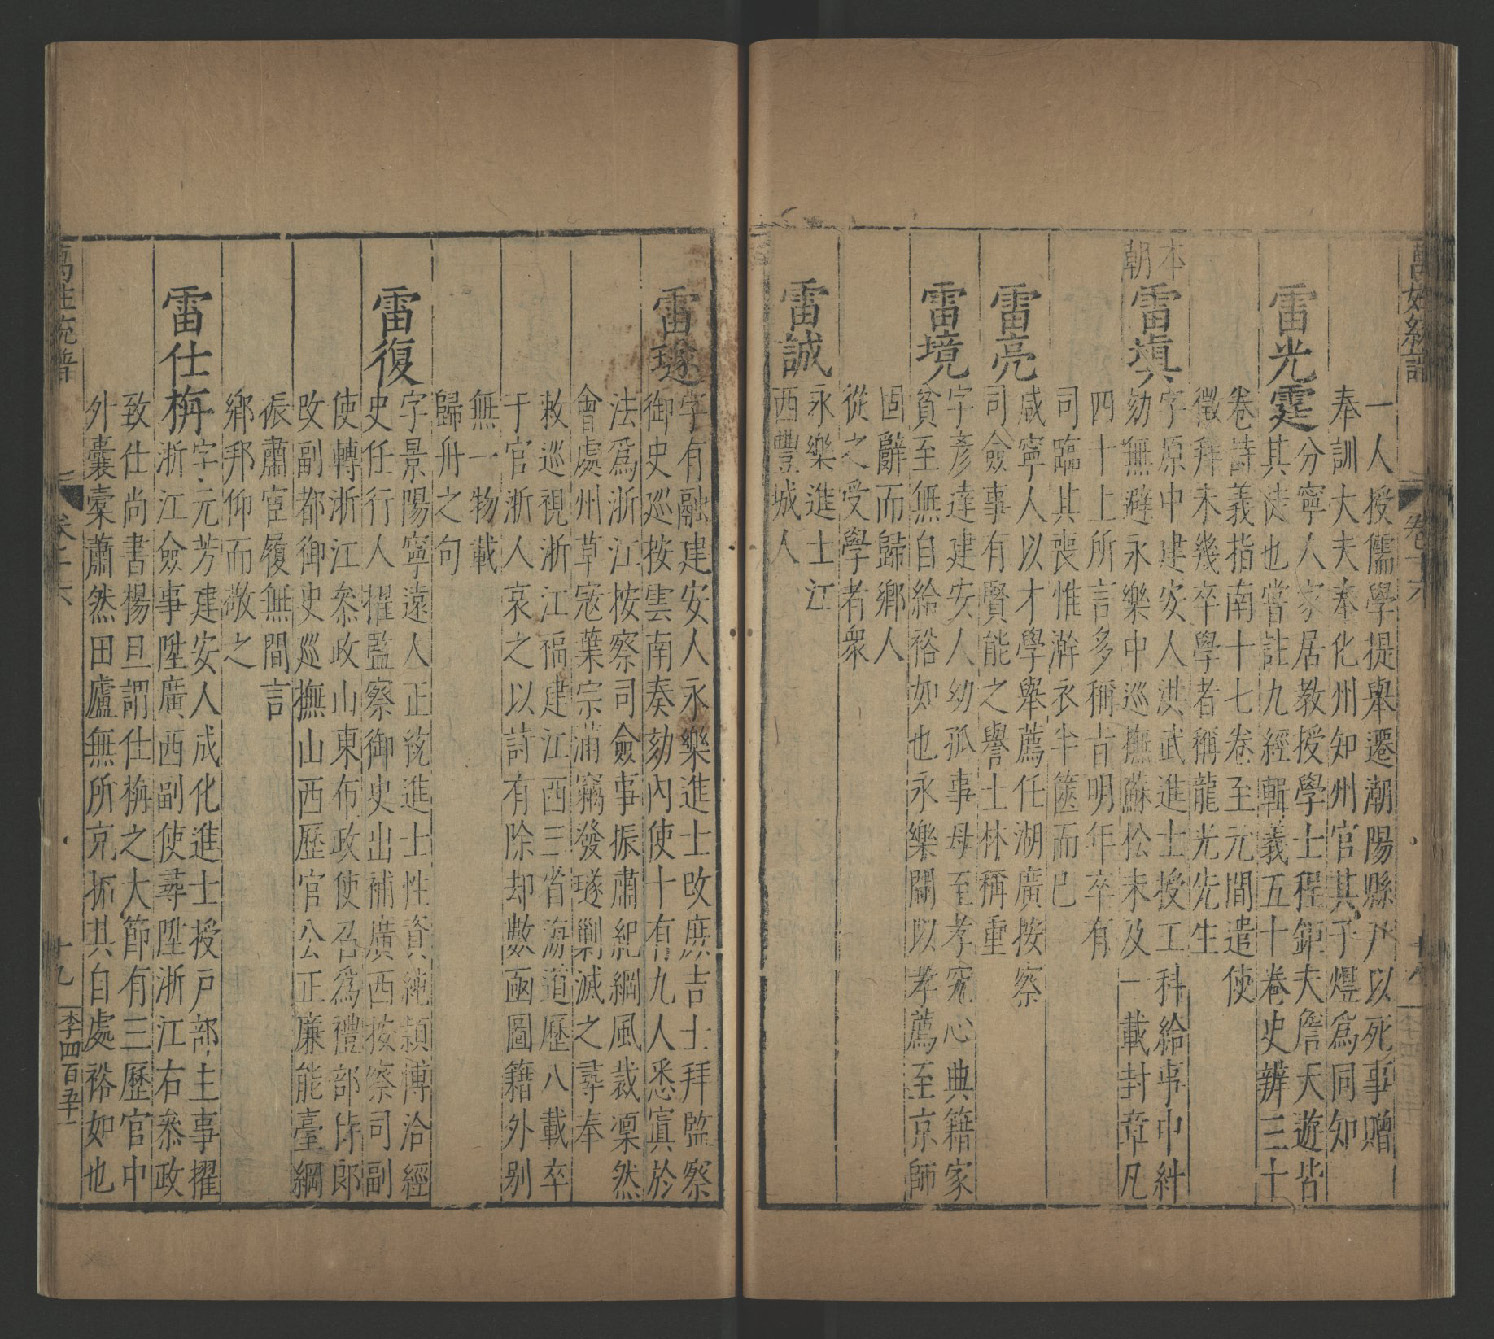 一人授儒學提舉遷潮陽縣尹以死事贈
奉訓大夫奉化州知州官其子燿爲同知
雷光霆
分寧人家居教授學士程鉅夫詹天遊皆
其徒也嘗註九經輯義五十卷史辨三十
卷詩義指南十七卷至元間遣使
徵拜未幾卒學者稱龍光先生
本朝
雷塡
字原中建安人洪武進士授工科給事中糾
劾無避永樂中巡撫蘇松未及一載封章凡
四十上所言多稱旨明年卒有
司臨其喪惟澣衣半篋而已
雷亮
咸寧人以才學舉薦任湖廣按察
司僉事有賢能之譽士林稱重
雷境
字彥達建安人幼孤事母至孝究心典籍家
貧至無自給裕如也永樂間以孝薦至京師
固辭而歸鄉人
從之受學者衆
雷誠
永樂進士江
西豐城人
雷璲
字有融建安人永樂進士改庶吉士拜監察
御史巡按雲南奏劾內使十有九人悉寘於
法爲浙江按察司僉事振肅紀綱風裁凜然
會處州草寇葉宗滿竊發璲剿滅之尋奉
敕巡視浙江福建江西三省海道歷八載卒
于官浙人哀之以詩有除却數函圖籍外别
無一物載
歸舟之句
雷復
字景陽寧遠人正統進士性資純頴博洽經
史任行人擢監察御史出補廣西按察司副
使轉浙江叅政山東布政使召爲禮部侍郎
改副都御史巡撫山西歷官公正廉能臺綱
振肅宦履無間言
鄉邦仰而敬之
雷仕栴
字元芳建安人成化進士授戶部主事擢
浙江僉事陞廣西副使尋陞浙江右叅政
致仕尚書楊旦謂仕栴之大節有三歷官中
外囊橐蕭然田廬無所克拓其自處裕如也
萬姓統譜
卷二六
十九
李四百五十